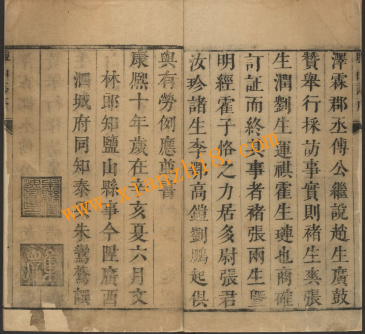 澤霖郡丞傅公繼說趙生廣鼓
贊舉行採訪事實則褚生
生潤劉生運祺霍生璉也商確
訂証而終其事者褚張兩生暨
明經霍子恪之力居多尉張君
汝珍諸生李 高鎧劉鵬起俱
與有勞例應 書
康熈十年歲在辛亥夏六月文
林郎知鹽山縣事今陞廣西
潯城府同知泰 朱鶯鶱譔
www.xianzhi8.com